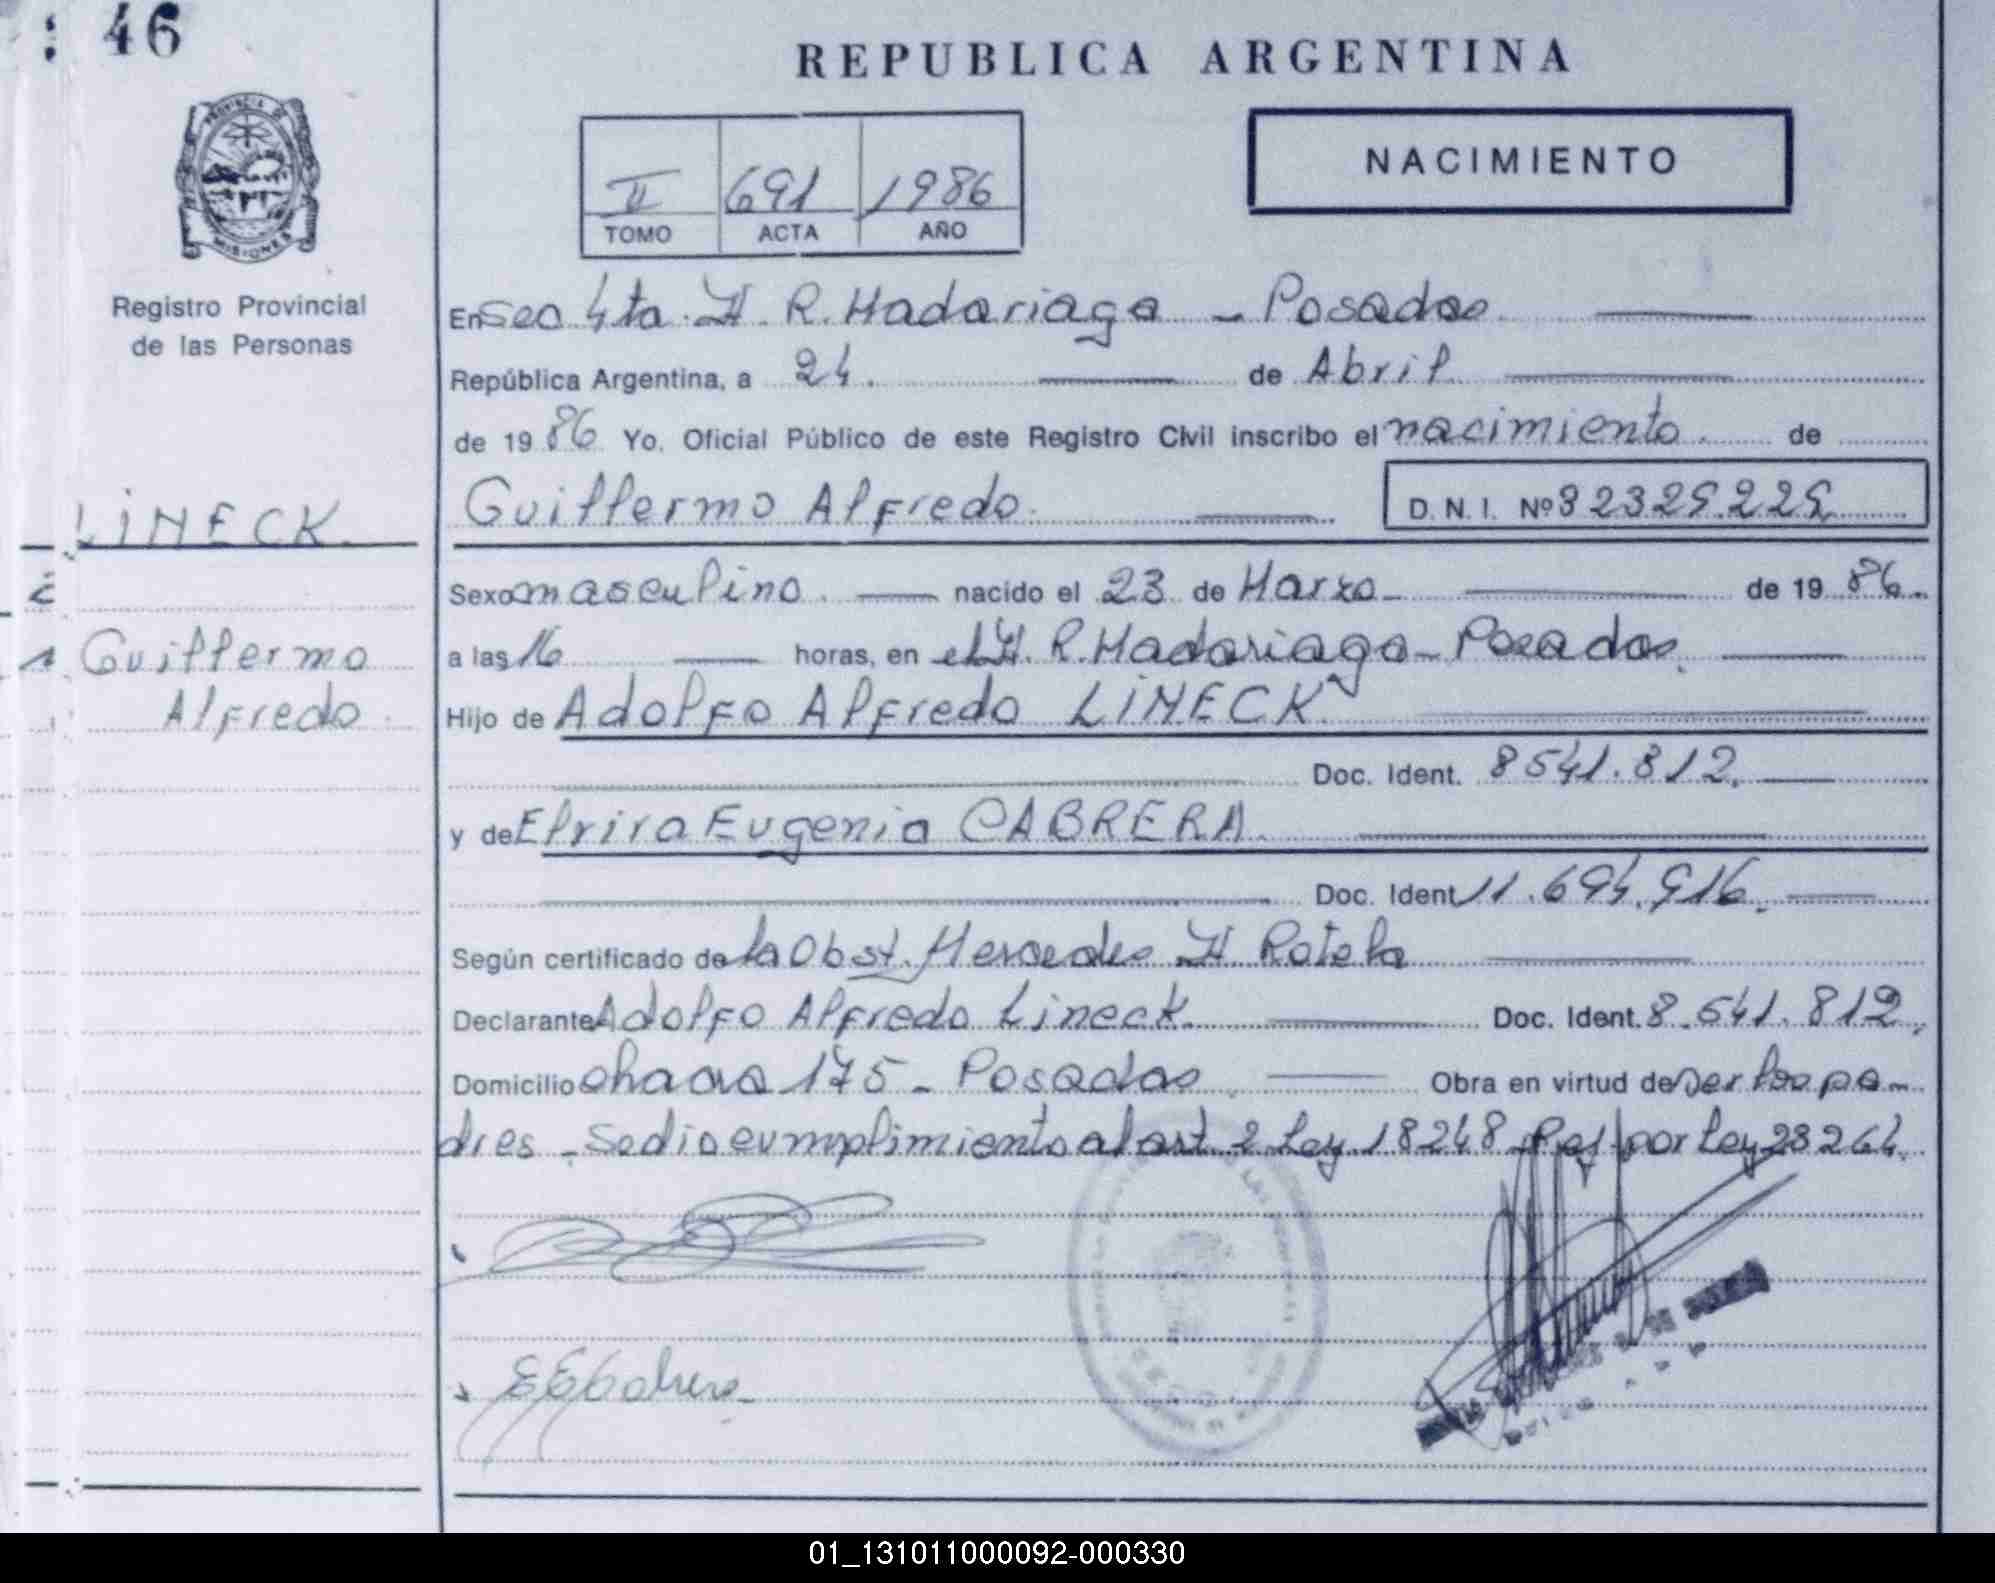 : 46
REPUBLICA ARGENTINA
PROVINCIA DE
MISIONES
II 691 1986
TOMO ACTA AÑO
NACIMIENTO
Registro Provincial
de las Personas
En Sec 4ta. H. R. Madariaga - Posadas
República Argentina, a 24. de Abril
de 1986 Yo, Oficial Público de este Registro Civil inscribo el nacimiento. de
LINECK.
Guillermo Alfredo. D. N. I. Nº
Sexo masculino. nacido el 23 de Marzo de 1986.
a las 16 horas, en el H. R. Madariaga - Posadas.
Guillermo
Alfredo.
Hijo de Adolfo Alfredo LINECK
Doc. Ident. 8541.812.
y de Elvira Eugenia CABRERA.
Doc. Ident 11.694.916.
Según certificado de la Obst. Mercedes H. Rotela
Declarante Adolfo Alfredo Lineck. Doc. Ident. 8.541.812.
Domicilio chacra 175 - Posadas Obra en virtud de ser los pa-
dres - Se dio cumplimiento al art. 2 Ley 18248 por Ley 23264.
01_131011000092-000330